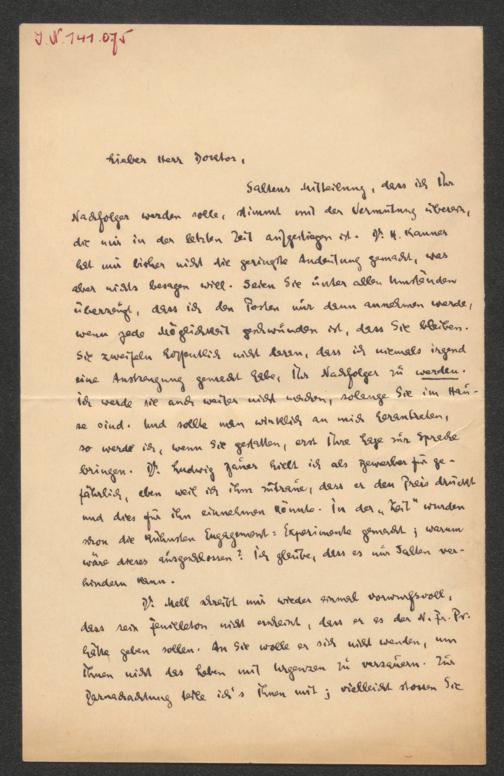 J.N. 141.075
Lieber Herr Doktor,
Saltens Mitteilung, dass ich Ihr
Nachfolger werden solle, stimmt mit der Vermutung überein,
die mir in der letzten Zeit aufgestiegen ist. Dr. H. Kanner
hat mir bisher nicht die geringste Andeutung gemacht, was
aber nichts besagen will. Seien Sie unter allen Umständen
überzeugt, dass ich den Posten nur dann annehmen werde,
wenn jede Möglichkeit geschwunden ist, dass Sie bleiben.
Sie zweifeln hoffentlich nicht daran, dass ich niemals irgend
eine Anstrengung gemacht habe, Ihr Nachfolger zu werden.
Ich werde sie auch weiter nicht machen, solange Sie im Hau-
se sind. Und sollte man wirklich an mich herantreten,
so werde ich, wenn Sie gestatten, erst Ihre Lage zur Sprache
bringen. Dr. Ludwig Bauer hielt ich als Bewerber für ge-
fährlich, eben weil ich ihm zutraue, dass er den Preis drückt
und dies für ihn einnehmen könnte. In der „Zeit" wurden
schon die kühnsten Engagement-Experimente gemacht; warum
wäre dieses ausgeschlossen? Ich glaube, dass es nur Salten ver-
hindern kann.
Dr. Mell schreibt mir wieder einmal vorwurfsvoll,
dass sein Feuilleton nicht erscheint, dass er es der N. Fr. Pr.
hätte geben sollen. An Sie wolle er sich nicht wenden, um
Ihnen nicht das Leben mit Urgenzen zu versauern. Zur
Darnachachtung teile ich's Ihnen mit; vielleicht stossen Sie